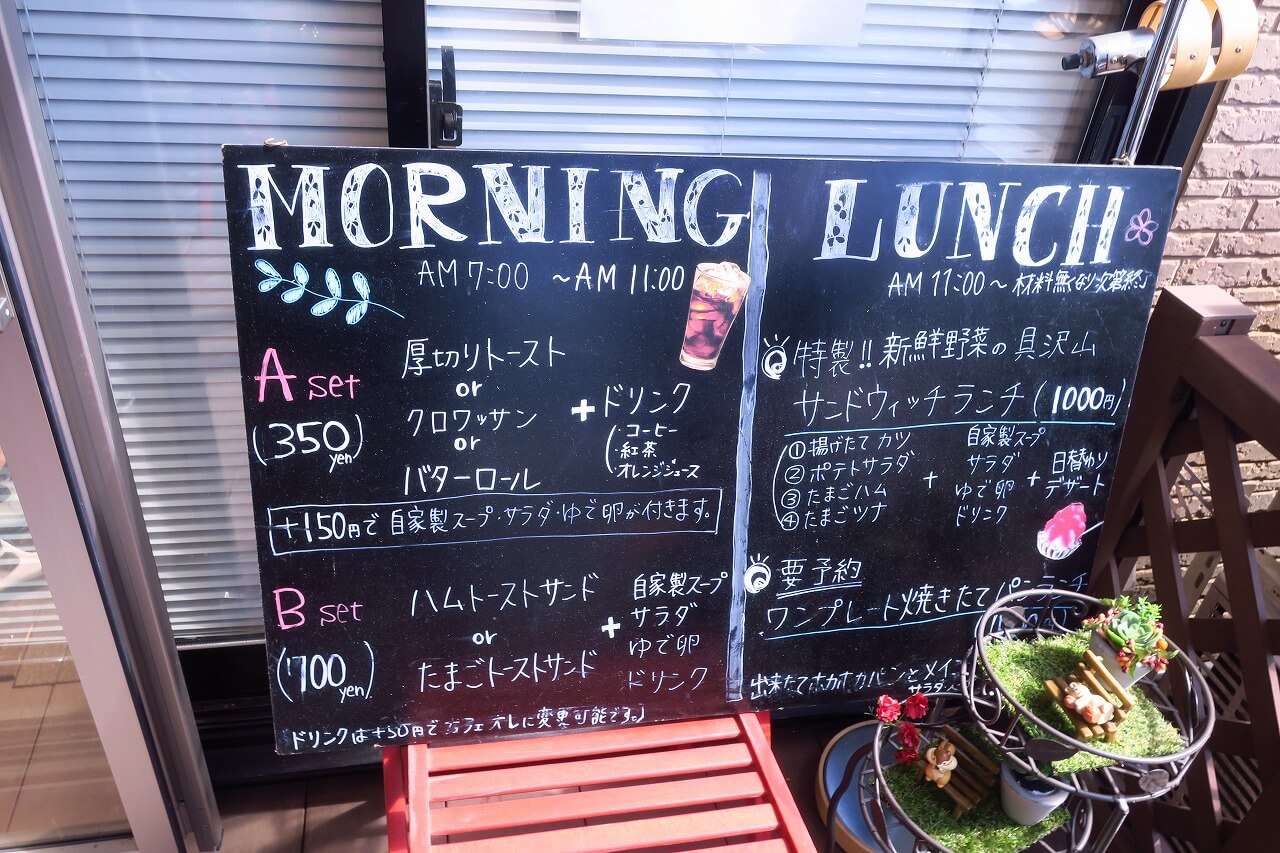 MORNING
AM 7:00 ~AM 11:00
A set
(350yen)
厚切りトースト
or
クロワッサン
or
バターロール
+ドリンク
(・コーヒー
・紅茶
・オレンジジュース
+150円で 自家製スープ・サラダ・ゆで卵が付きます。
B set
(700yen)
ハムトーストサンド
or
たまごトーストサンド
+
自家製スープ
サラダ
ゆで卵
ドリンク
ドリンクは+50円でカフェオレに変更可能です。
LUNCH
AM 11:00~ 材料無くなり次第終了
特製!! 新鮮野菜の具沢山
サンドウィッチランチ(1000円)
①揚げたてカツ
②ポテトサラダ
③たまごハム
④たまごツナ
+
自家製スープ
サラダ
ゆで卵
ドリンク
+
日替わり
デザート
要予約
ワンプレート焼きたてパンランチ
出来たてホカホカパンとメイン
サラダ